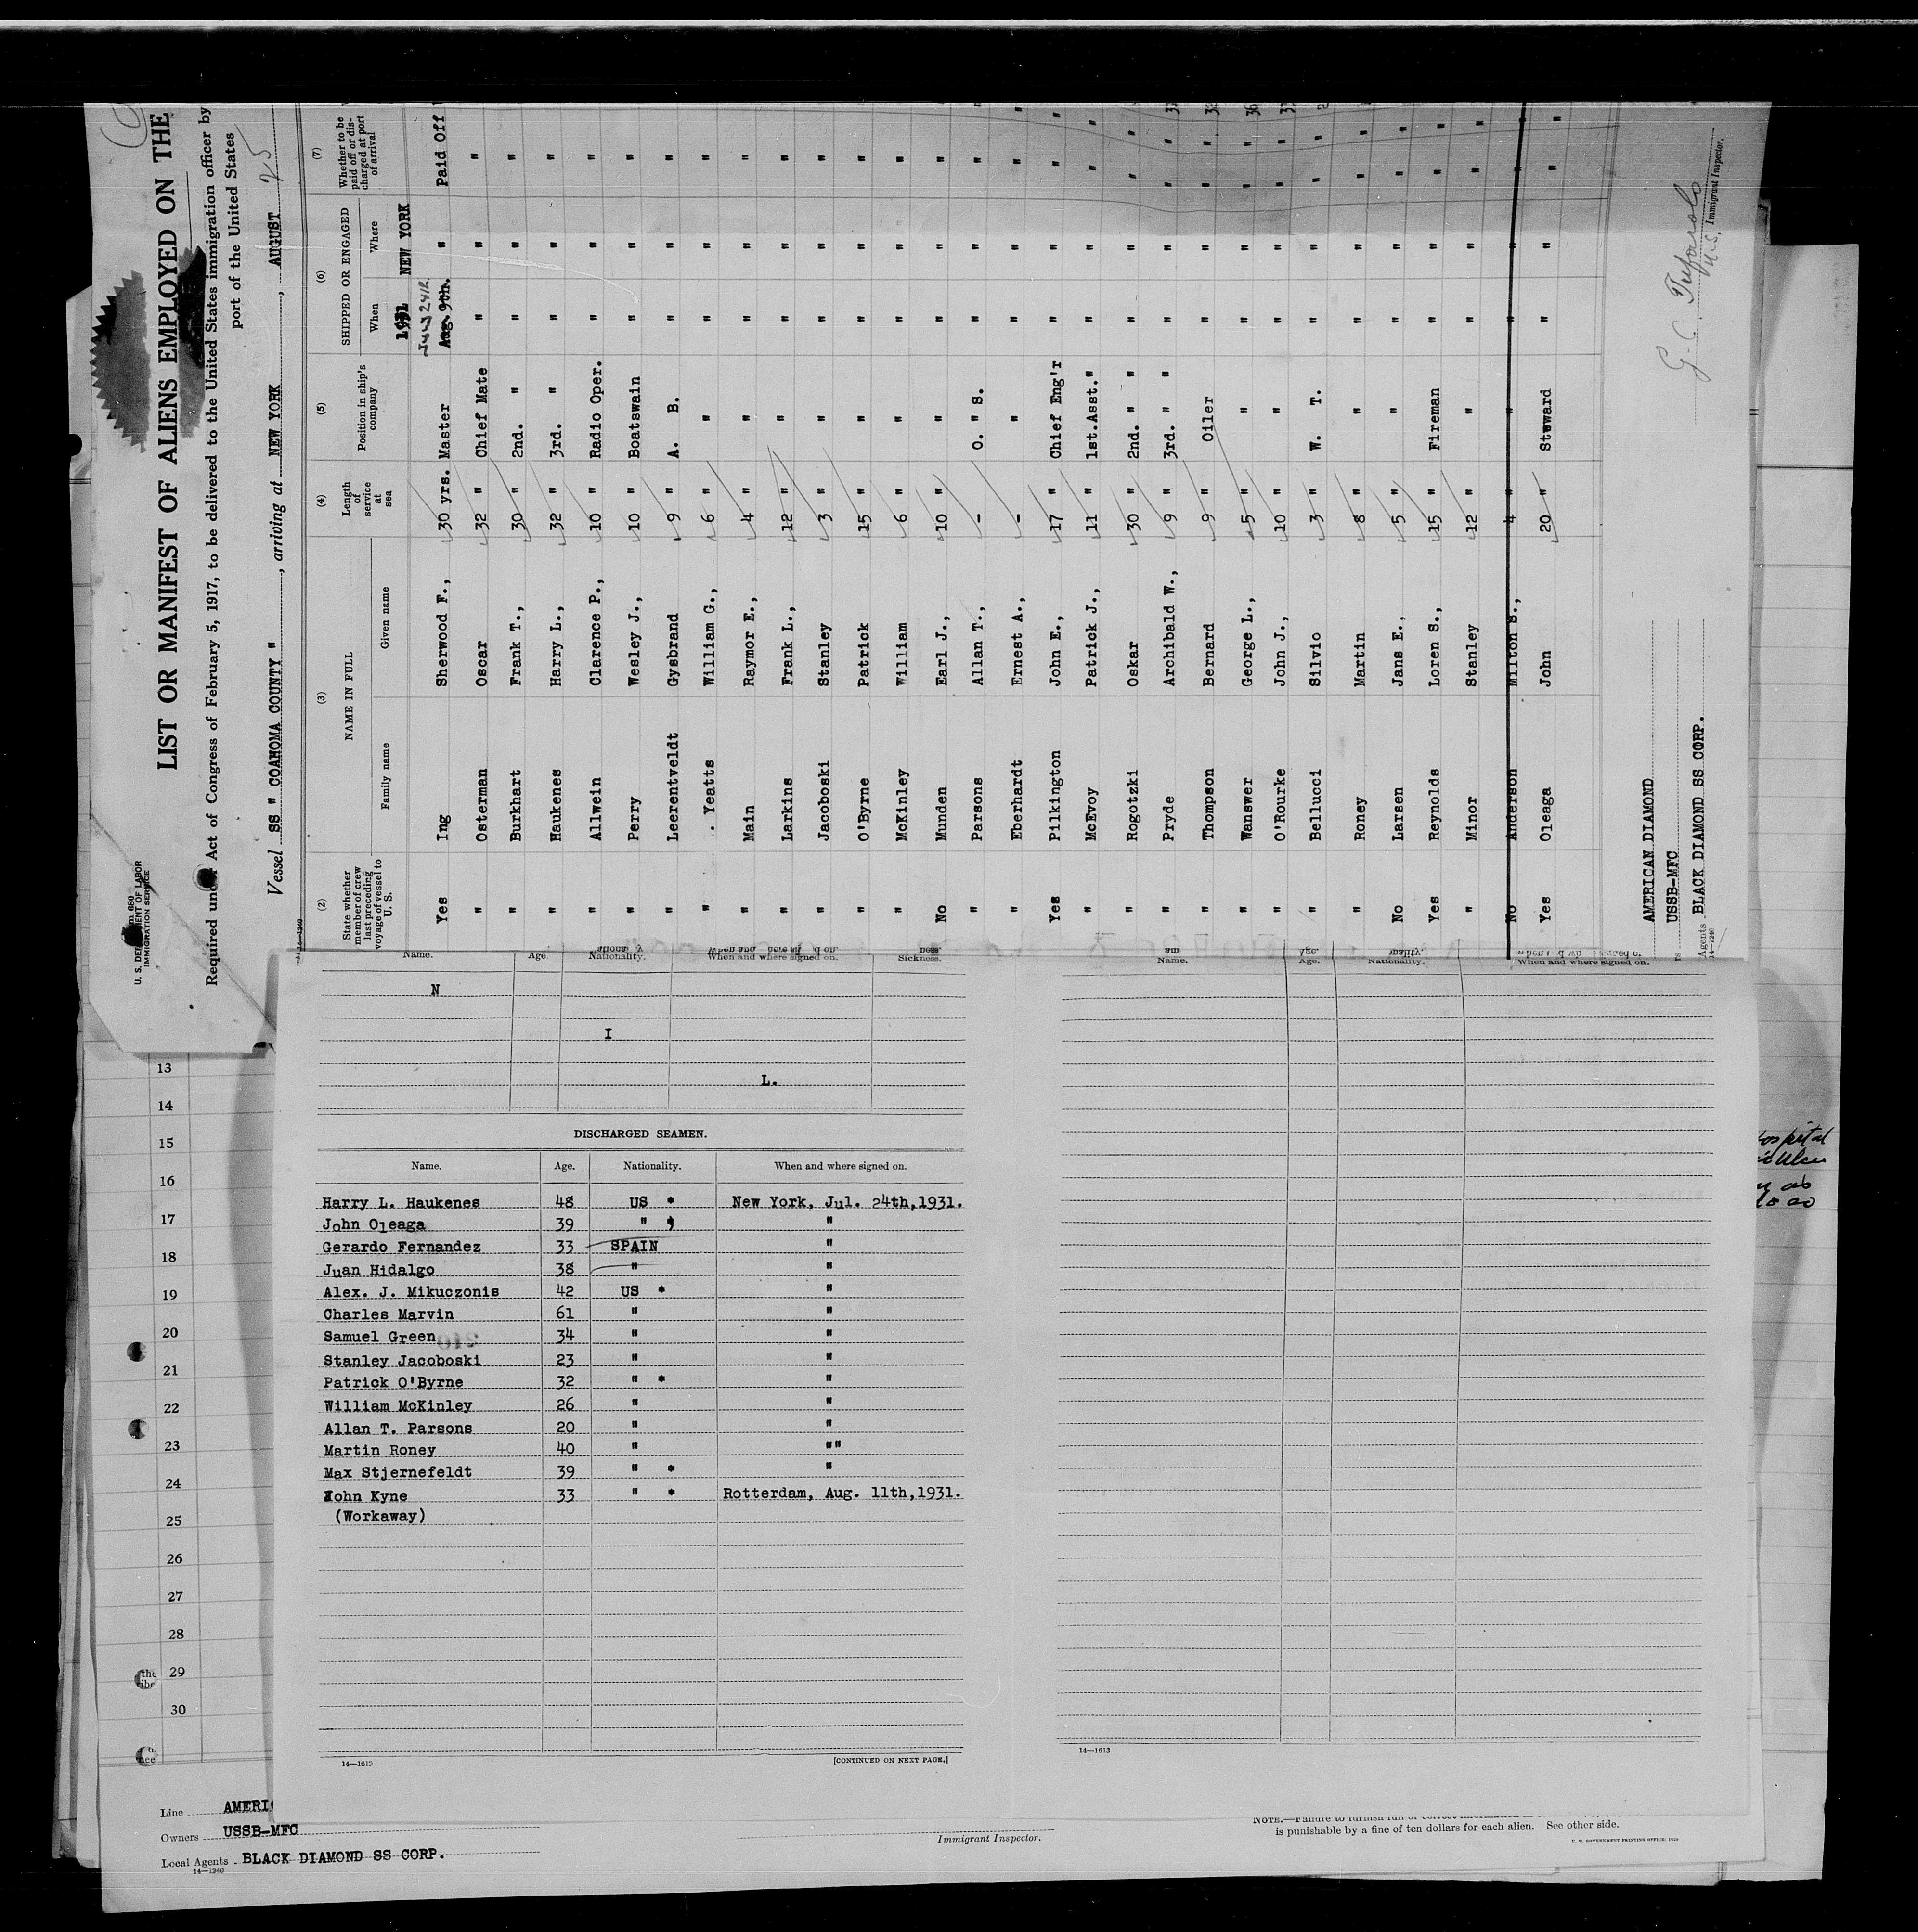 LIST OR MANIFEST OF ALIENS EMPLOYED ON THE
U. S. DEPARTMENT OF LABOR
IMMIGRATION SERVICE
Required under Act of Congress of February 5, 1917, to be delivered to the United States immigration officer by
port of the United States
Vessel SS " COAHOMA COUNTY " , arriving at NEW YORK , AUGUST 25
14—1240
(2) (3) (4) (5) (6) (7)
State whether member of crew last preceding voyage of vessel to U. S. NAME IN FULL Length of service at sea Position in ship's company SHIPPED OR ENGAGED Whether to be paid off or discharged at port of arrival
Family name Given name When Where
1931 NEW YORK
Yes Ing Sherwood F., 30 yrs. Master Aug. 9th. " Paid Off
" Osterman Oscar 32 " Chief Mate " " "
" Burkhart Frank T., 30 " 2nd. " " " "
" Haukenes Harry L., 32 " 3rd. " " " "
" Allwein Clarence P., 10 " Radio Oper. " " "
" Perry Wesley J., 10 " Boatswain " " "
" Leerentveldt Gysbrand 9 " A. B. " " "
" Yeatts William G., 6 " " " " "
" Main Raymor E., 4 " " " " "
" Larkins Frank L., 12 " " " " "
" Jacoboski Stanley 3 " " " " "
" O'Byrne Patrick 15 " " " " "
" McKinley William 6 " " " " "
No Munden Earl J., 10 " " " " "
" Parsons Allan T., - O. " S. " " "
" Eberhardt Ernest A., - " " " "
Yes Pilkington John E., 17 " Chief Eng'r " " "
" McEvoy Patrick J., 11 " 1st.Asst." " " "
" Rogotzki Oskar 30 " 2nd. " " " " "
" Pryde Archibald W., 9 " 3rd. " " " " "
" Thompson Bernard 9 " Oiler " " "
" Wanswer George L., 5 " " " " "
" O'Rourke John J., 10 " " " " "
" Bellucci Silvio 3 " W. T. " " "
" Roney Martin 8 " " " " "
No Larsen Jans E., 5 " " " " "
Yes Reynolds Loren S., 15 " Fireman " " "
" Minor Stanley 12 " " " " "
No Anderson Milton S., 4 " " " " "
Yes Oleaga John 20 " Steward " " "
AMERICAN DIAMOND
USSB-MFC
Agents BLACK DIAMOND SS CORP.
14—1240
Immigrant Inspector.
Name. Age. Nationality. When and where signed on. Sickness.
N
I
L.
DISCHARGED SEAMEN.
Name. Age. Nationality. When and where signed on.
Harry L. Haukenes 48 US * New York, Jul. 24th,1931.
John Oleaga 39 " * "
Gerardo Fernandez 33 SPAIN "
Juan Hidalgo 38 " "
Alex. J. Mikuczonis 42 US * "
Charles Marvin 61 " "
Samuel Green 34 " "
Stanley Jacoboski 23 " "
Patrick O'Byrne 32 " * "
William McKinley 26 " "
Allan T. Parsons 20 " "
Martin Roney 40 " ""
Max Stjernefeldt 39 " * "
John Kyne 33 " * Rotterdam, Aug. 11th,1931.
(Workaway)
[CONTINUED ON NEXT PAGE.]
Name. Age. Nationality. When and where signed on.
14—1613
13
14
15
16
17
18
19
20
21
22
23
24
25
26
27
28
29
30
Line AMERIC
Owners USSB-MFC
Local Agents BLACK DIAMOND SS CORP.
14—1240
Immigrant Inspector.
is punishable by a fine of ten dollars for each alien. See other side.
U. S. GOVERNMENT PRINTING OFFICE